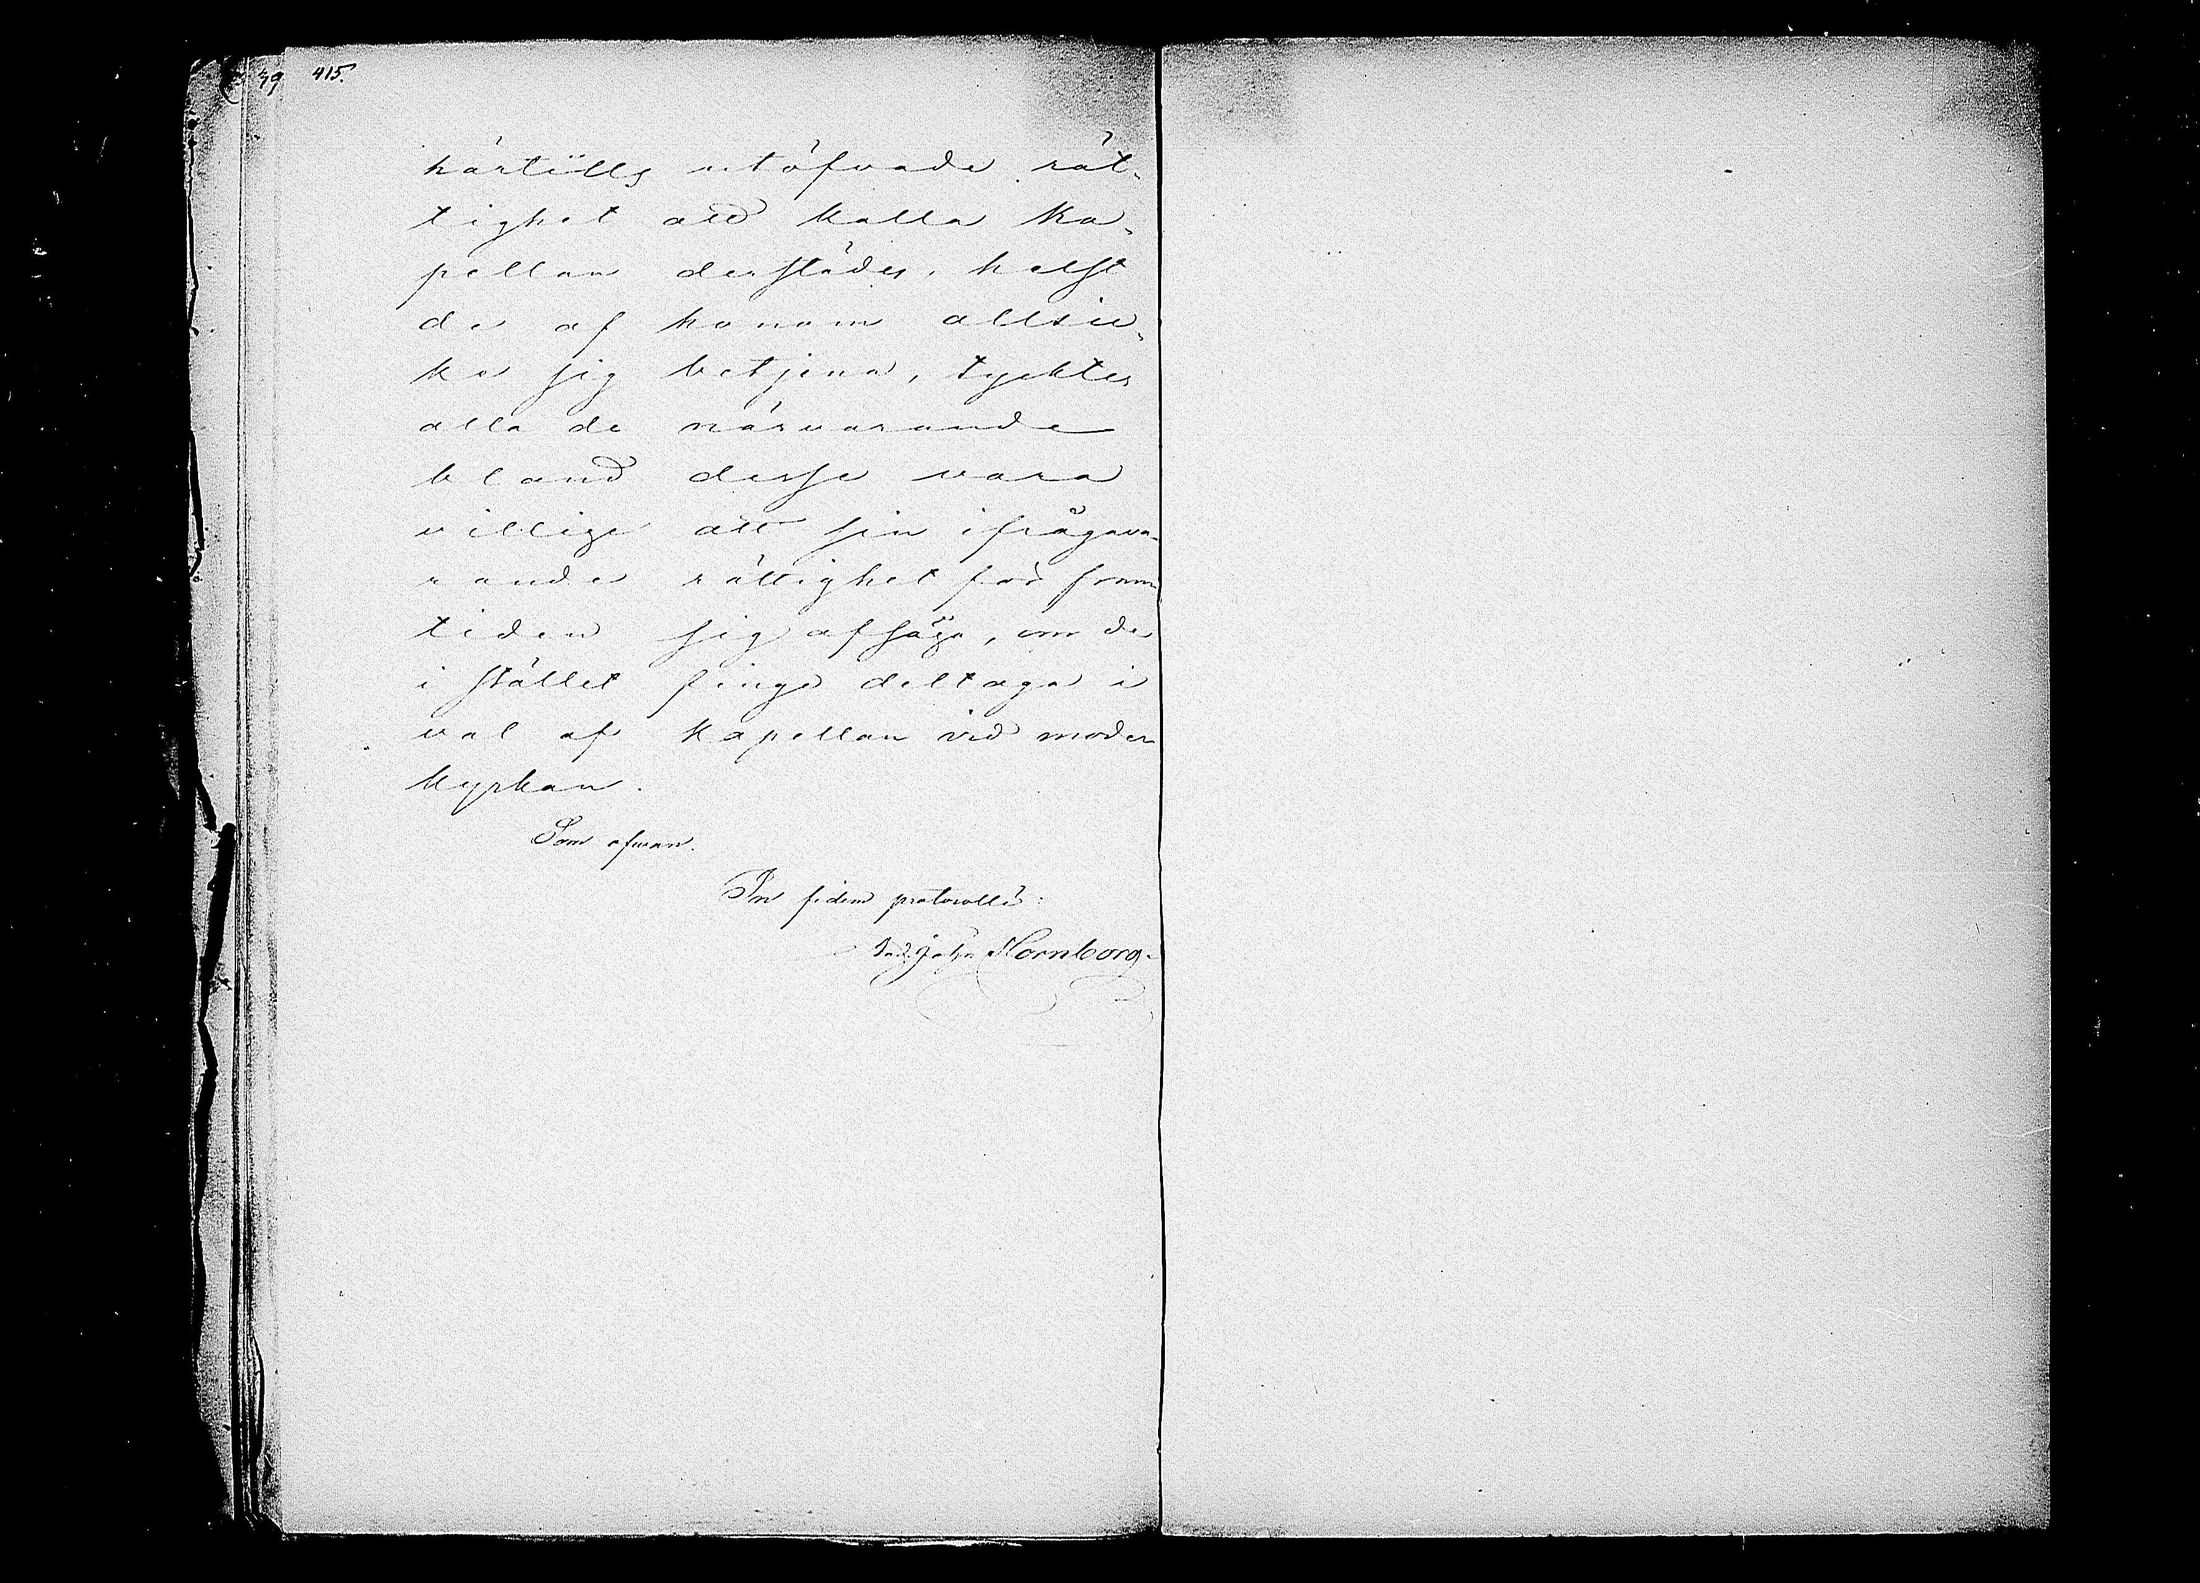 415.
härtills utöfvade rät-
tighet att kalla Ka-
pellan derstädes, helst
de af honom alltid
sig betjena, tycktes
alla de närvarande
bland desse vara
villige att sin ifrågava-
rande rättighet för fram
tiden sig afsäga, om de
i stället finge deltaga i
val af Kapellan vid moder
kyrkan.
Som ofvan.
In fidem protocolli:
Joh Hornborg.